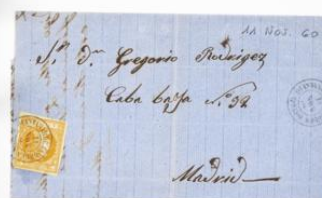 11 NOV. 60
Sr. Dn. Gregorio Rodrigez
Caba baja No. 92
Madrid